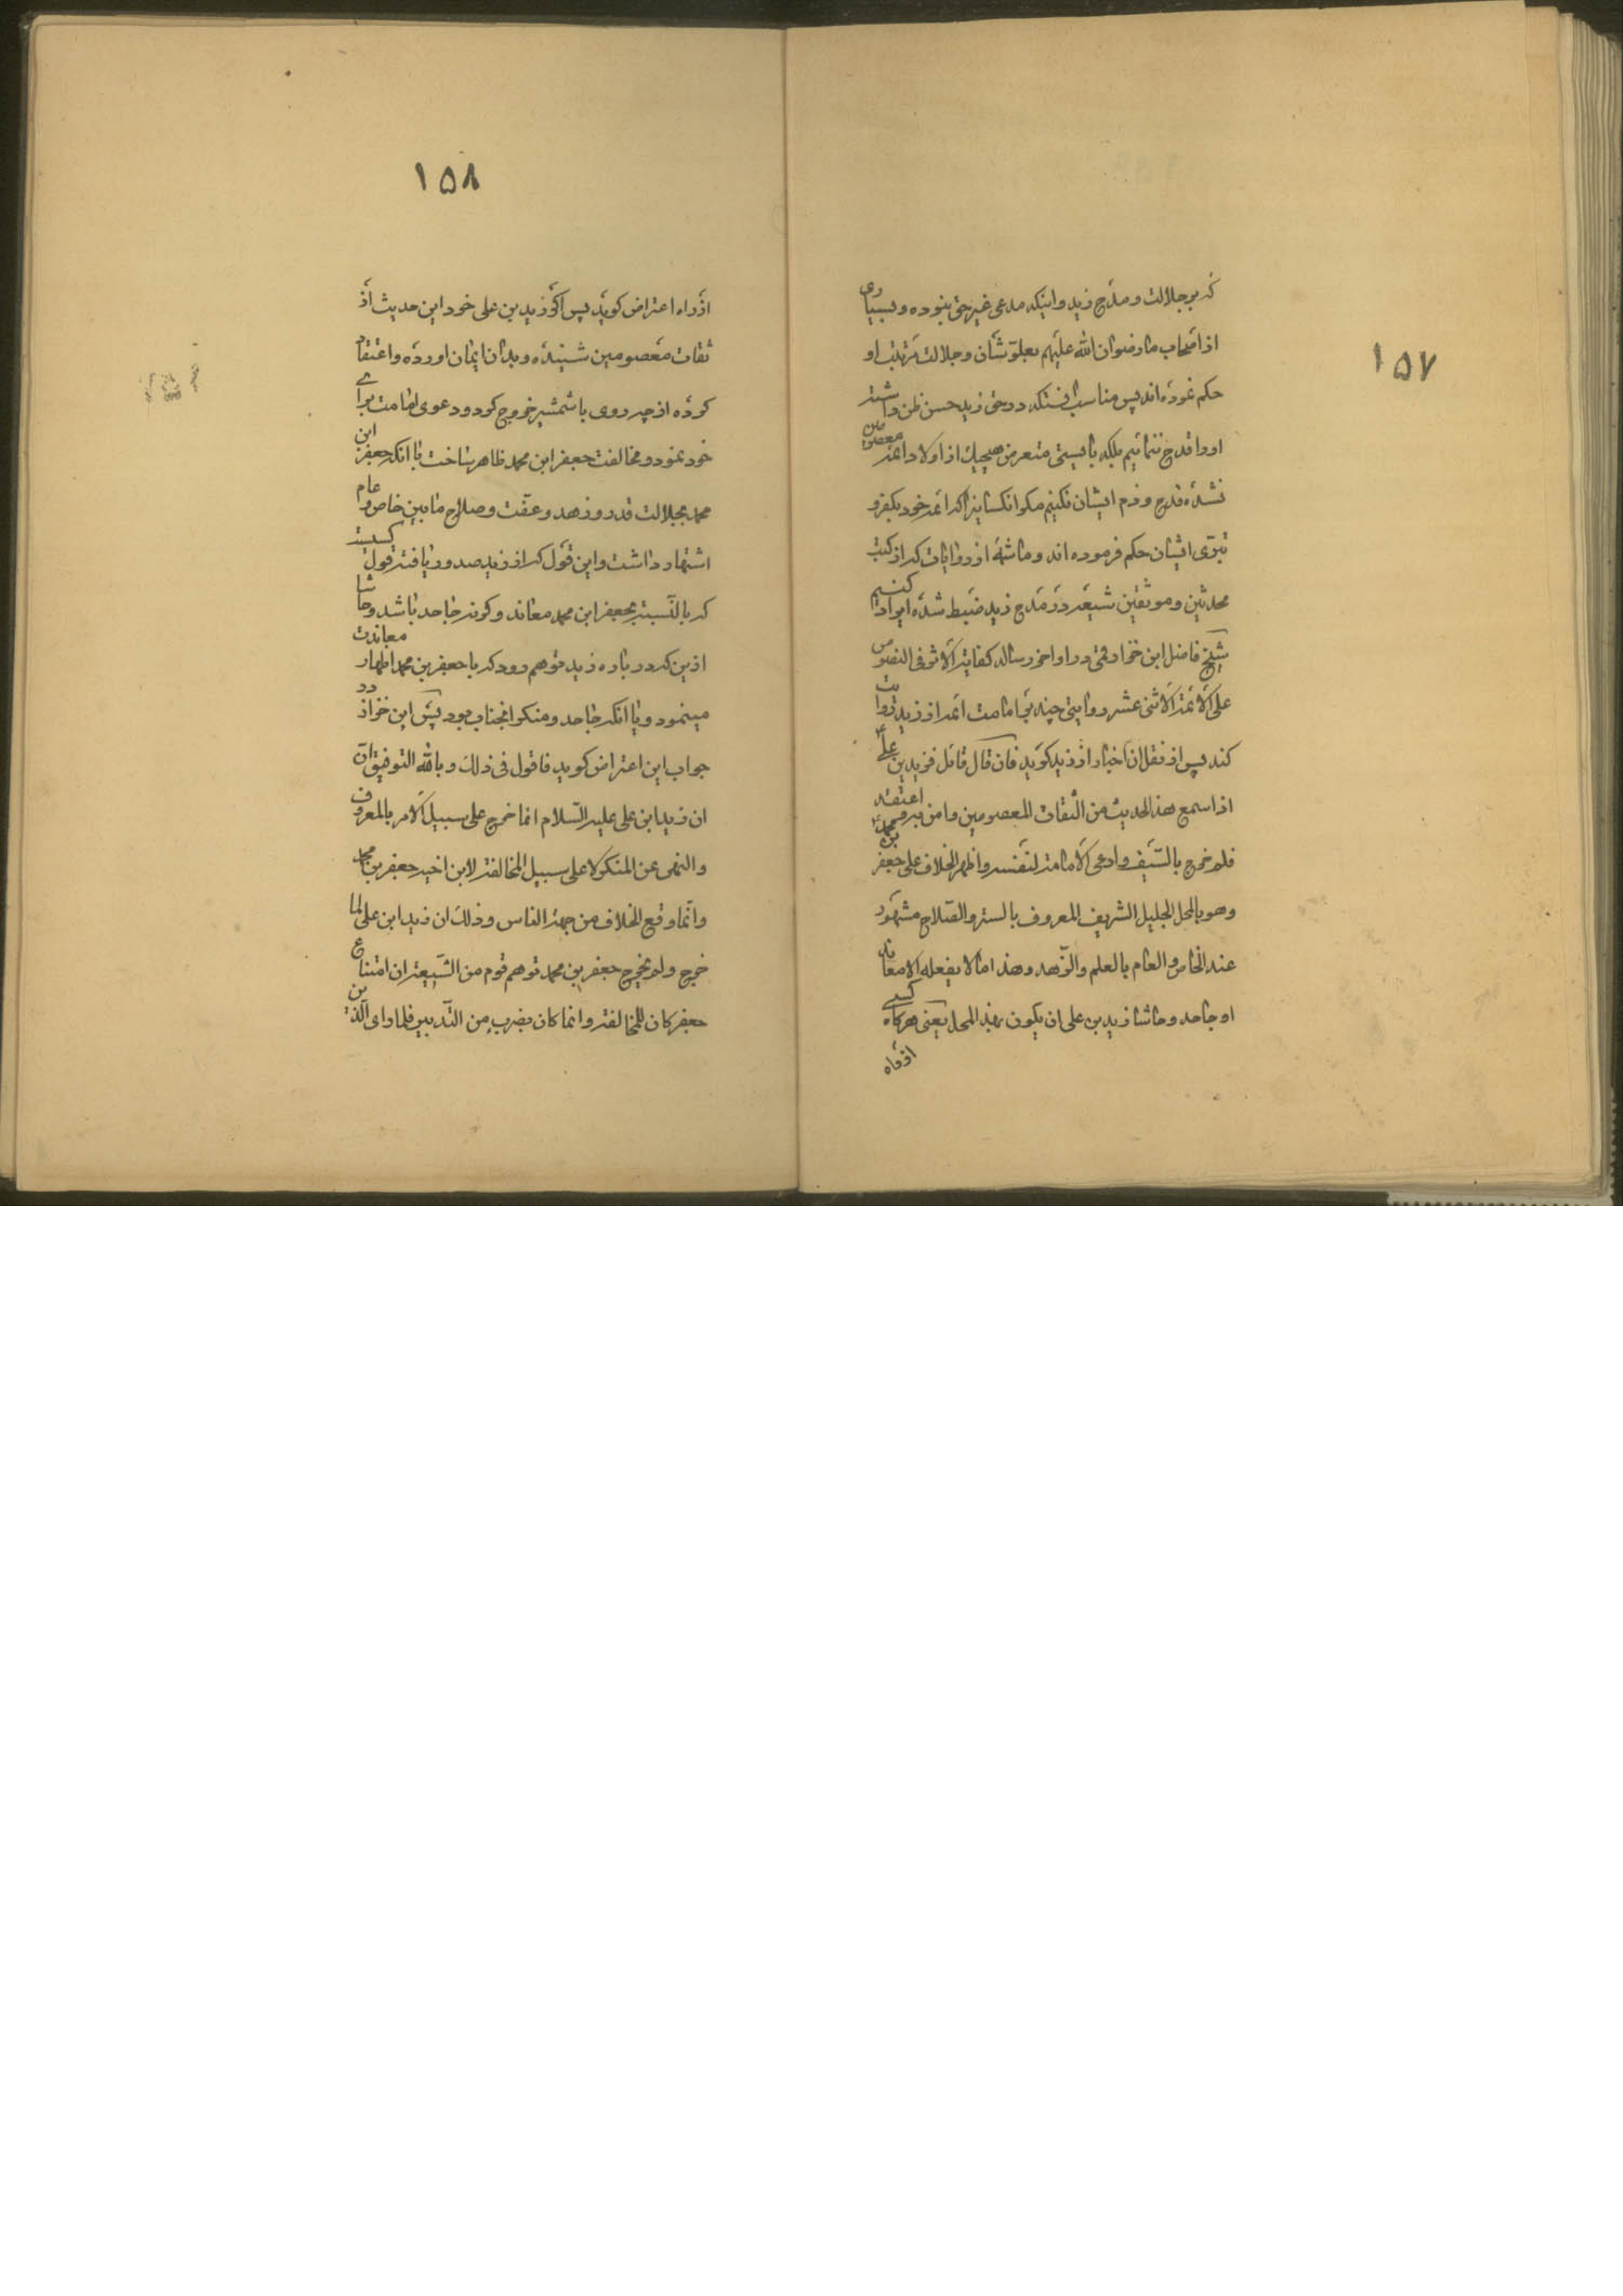 ۱۵۷
که بر جلالت و مدح زید و اینکه مدعی غیر حق نبوده و بسیاری
از اصحاب ما رضوان الله علیهم بعلو شان و جلالت مرتبت او
حکم نموده اند پس مناسب انستکه در حق زید حسن ظن داشته
او را قدح ننمائیم بلکه بایستی متعرض هیچیک از اولاد ائمه معصومین
نشده قدح و ذم ایشان نکنیم مکر انکسانیرا که ائمه خود بکفر و
تبری ایشان حکم فرموده اند و ما شمهٔ از روایات که از کتب
محدثین و موثقین شیعه در مدح زید ضبط شده ایراد کنیم
شیخ فاضل ابن خزاز قمی در اواخر رساله کفایة الاثر فی النصوص
علی الائمة الاثنی عشر روایتی چند بر امامت ائمه از زید روایت
کند پس از نقل ان اخبار از زید کوید فان قال قائل فزید بن علی
اذا سمع هذا الحدیث من الثقات المعصومین و امن به و اعتقده
فلم خرج بالسیف و ادعی الامامة لنفسه و اظهر الخلاف علی جعفر بن محمد
و هو بالمحل الجلیل الشریف المعروف بالستر و الصلاح مشهور
عند الخاص و العام بالعلم و الزهد و هذا ما لا یفعله الا معاند
او جاحد و حاشا زید بن علی ان یکون بهذ المحل یعنی هرکاه کسی
از راه
۱۵۸
از راه اعتراض کوید پس اکر زید بن علی خود این حدیث از
ثقات معصومین شنیده و بدان ایمان اورده و اعتقاد
کرده از چه روی با شمشیر خروج کرد و دعوی امامت برای
خود نمود و مخالفت جعفر ابن محمد ظاهر ساخت با انکه جعفر ابن
محمد بجلالت قدر و زهد و عفت و صلاح مابین خاص و عام
اشتهار داشت و این قول که از زید صدور یافته قول کسیست
که بالنسبه بجعفر ابن محمد معاند و کونه جاحد باشد و حاشا
از ین که در باره زید توهم رود که با جعفر بن محمد اظهار معاندت
مینمود و یا انکه جاحد و منکر انجناب بود پس ابن خزاز در
جواب این اعتراض کوید فاقول فی ذلک و بالله التوفیق ان
ان زید ابن علی علیه السلام انما خرج علی سبیل الامر بالمعروف
و النهی عن المنکر لا علی سبیل المخالفة لابن اخیه جعفر بن محمد
و انما وقع الخلاف من جهة الناس و ذلک ان زید ابن علی لما
خرج و لم یخرج جعفر بن محمد توهم قوم من الشیعة ان امتناع
جعفر کان للمخالفة و انما کان بضرب من التدبیر فلما رای الذین